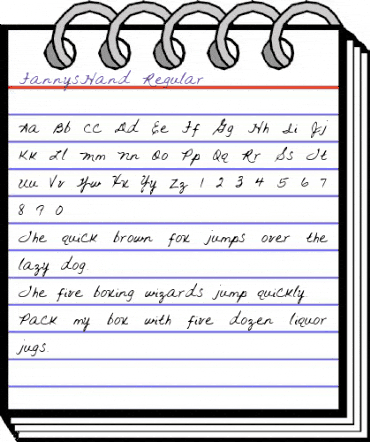 FannysHand Regular
Aa Bb Cc Dd Ee Ff Gg Hh Ii Jj
Kk Ll Mm Nn Oo Pp Qq Rr Ss Tt
Uu Vv Ww Xx Yy Zz 1 2 3 4 5 6 7
8 9 0
The quick brown fox jumps over the
lazy dog
The five boxing wizards jump quickly
Pack my box with five dozen liquor
jugs.